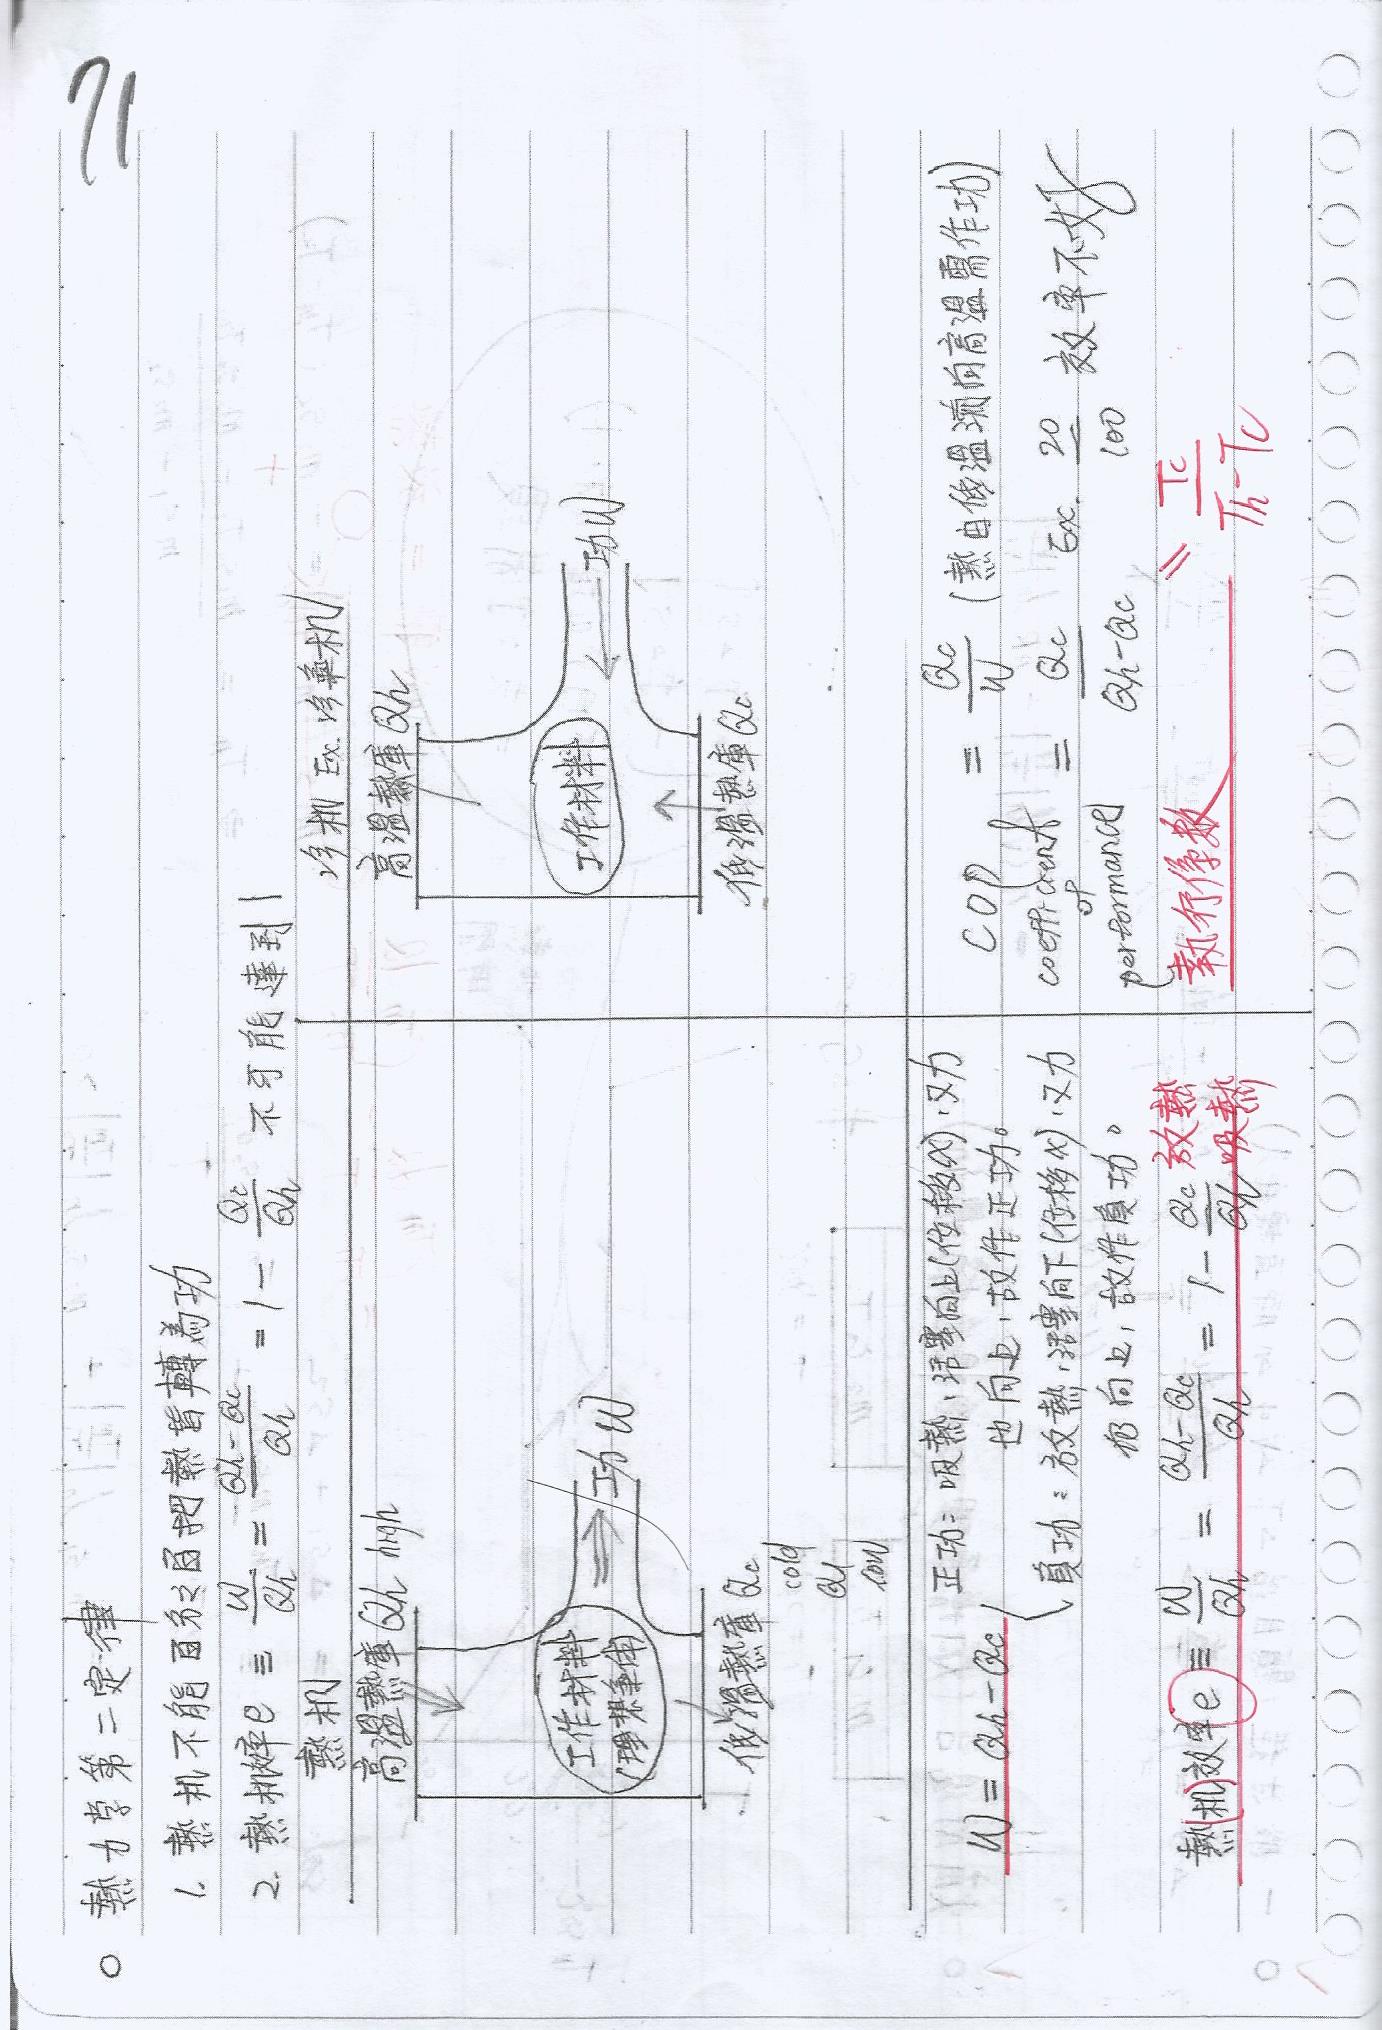 71
熱力学第二定律
1. 熱机不能百分之百把熱皆轉為功
2. 熱机效率e ≡ W/Qh = Qh-Qc/Qh = 1 - Qc/Qh 不可能達到1
熱机
高溫熱庫 Qh high
工作材料
(理想氣体)
功W
低溫熱庫 Qc
cold
Ql
low
冷机 Ex. 冷氣机
高溫熱庫 Qh
工作材料
功W
低溫熱庫 Qc
W = Qh - Qc
正功: 吸熱,活塞向上(位移x),又力
也向上,故作正功。
負功: 放熱,活塞向下(位移x),又力
卻向上,故作負功。
熱机效率e ≡ W/Qh = Qh-Qc/Qh = 1 - Qc/Qh 放熱/吸熱
COP = Qc/W (熱由低溫流向高溫需作功)
coefficient of performance = Qc/Qh-Qc Ex. 20/100 效率不好
執行係數 = Tc/Th-Tc